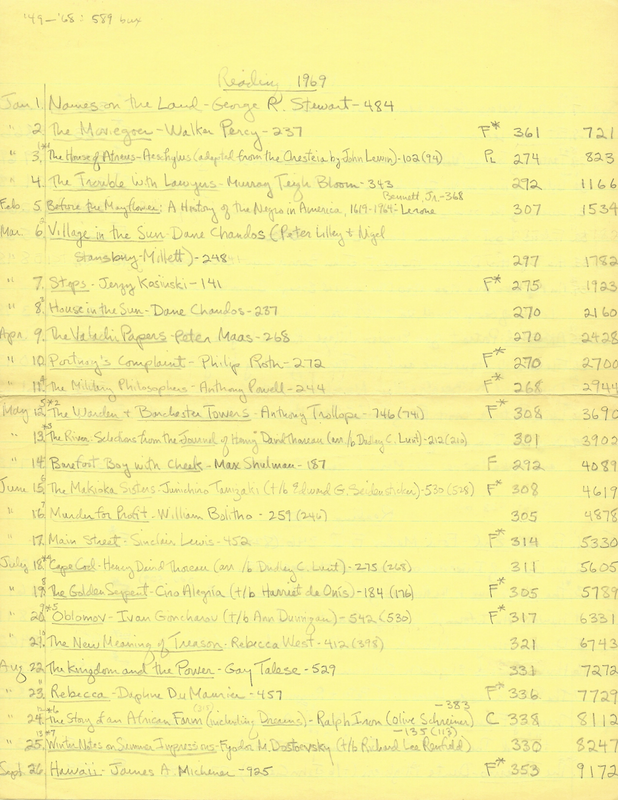 '49-'68: 589 bux
Reading 1969
Jan. 1. Names on the Land - George R. Stewart - 484
" 2. The Moviegoer - Walker Percy - 237 F* 361 721
" 3. The House of Atreus - Aeschylus (adapted from the Oresteia by John Lewin) - 102 (99) PL 274 823
" 4. The Trouble with Lawyers - Murray Teigh Bloom - 343 292 1166
Feb. 5. Before the Mayflower: A History of the Negro in America, 1619-1964 - Lerone Bennett, Jr. - 368 307 1534
Mar. 6. Village in the Sun - Dane Chandos (Peter Lilley & Nigel
Stansbury-Millett) - 248 297 1782
" 7. Steps - Jerzy Kosinski - 141 F* 275 1923
" 8. House in the Sun - Dane Chandos - 237 270 2160
Apr. 9. The Valachi Papers - Peter Maas - 268 270 2428
" 10. Portnoy's Complaint - Philip Roth - 272 F* 270 2700
" 11. The Military Philosophers - Anthony Powell - 244 F* 268 2944
May 12. The Warden & Barchester Towers - Anthony Trollope - 746 (741) F* 308 3690
" 13. The River - Selections from the Journal of Henry David Thoreau (arr. /b Dudley C. Lunt) - 212 (210) 301 3902
" 14. Barefoot Boy with Cheek - Max Shulman - 187 F 292 4089
June 15. The Makioka Sisters - Junichiro Tanizaki (t/b Edward G. Seidensticker) - 530 (528) F* 308 4619
" 16. Murder for Profit - William Bolitho - 259 (246) 305 4878
" 17. Main Street - Sinclair Lewis - 452 F* 314 5330
July 18. Cape Cod - Henry David Thoreau (arr. /b Dudley C. Lunt) - 275 (268) 311 5605
" 19. The Golden Serpent - Ciro Alegría (t/b Harriet de Onís) - 184 (176) F* 305 5789
" 20. Oblomov - Ivan Goncharov (t/b Ann Dunnigan) - 542 (530) F* 317 6331
" 21. The New Meaning of Treason - Rebecca West - 412 (398) 321 6743
Aug 22. The Kingdom and the Power - Gay Talese - 529 331 7272
" 23. Rebecca - Daphne Du Maurier - 457 F* 336 7729
" 24. The Story of an African Farm (including Dreams) - Ralph Iron (Olive Schreiner) - 383 C 338 8112
" 25. Winter Notes on Summer Impressions - Fyodor M. Dostoevsky (t/b Richard Lee Renfield) - 135 (113) 330 8247
Sept. 26. Hawaii - James A. Michener - 925 F* 353 9172